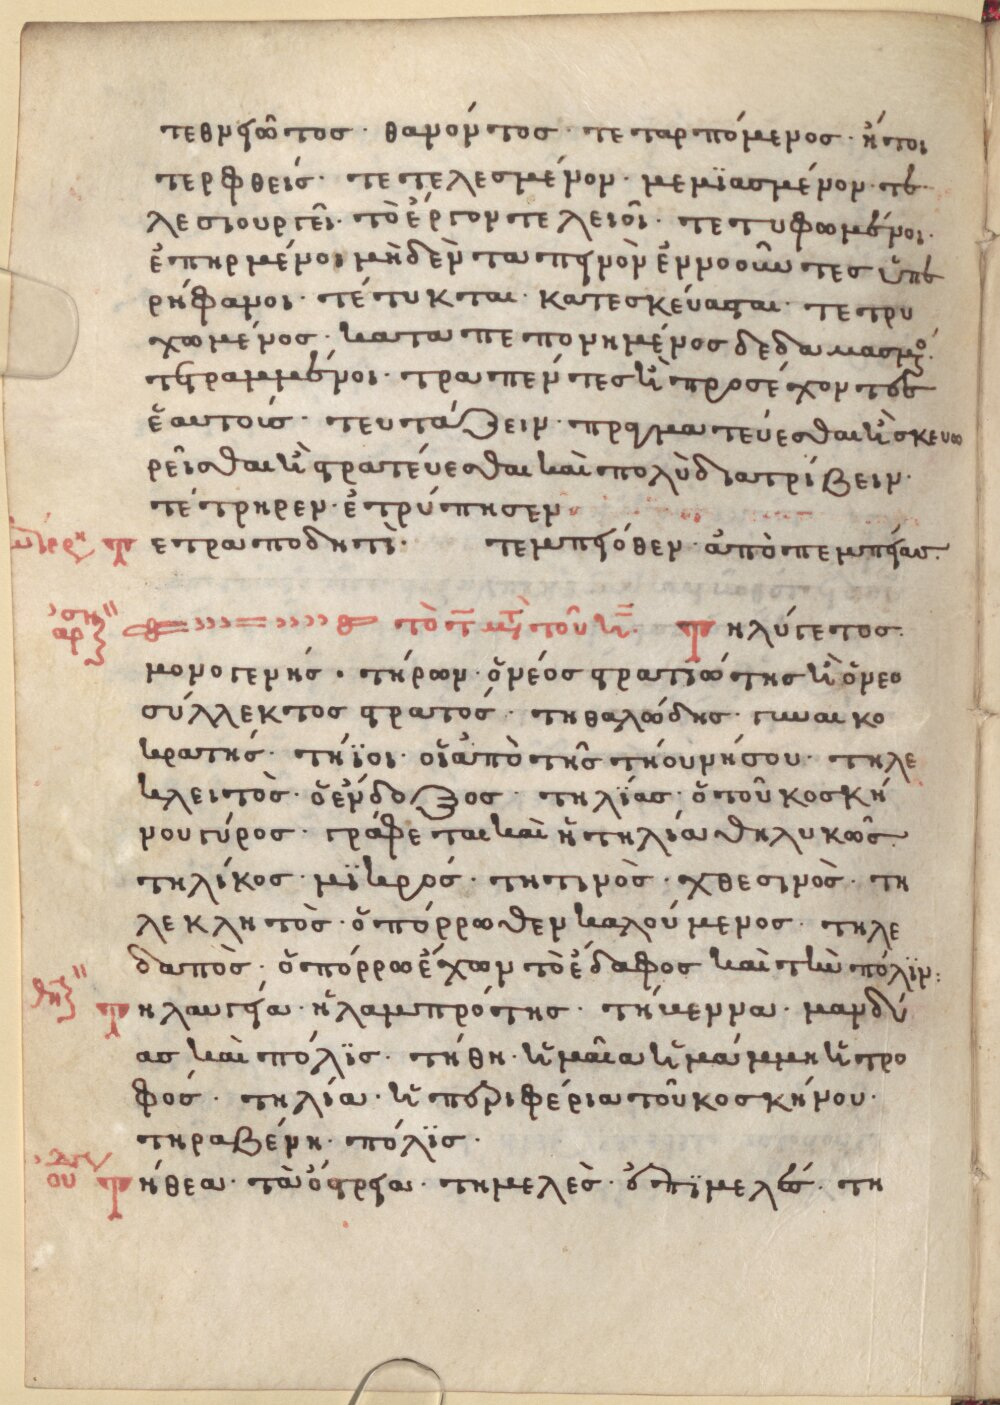 τεθνειῶτος · θανόντος · τεταρπόμενος · ἤτοι
τερφθείς · τετελεσμένον · μεμϊασμένον · τε
λεσιουργεῖ · τὸ ἔργον τελειοῖ · τετυφωμένοι ·
ἐπηρμένοι μηδὲν ταπεινὸν ἐννοοῦντες ὑπε
ρήφανοι · τέτυκται · κατεσκεύασται · τετρυ
χωμένος · καταπεπονημένος δεδαμασμένος ·
τετραμμένοι · τραπέντες καὶ προσέχοντες
ἑαυτοῖς · τευτάζειν · πραγματεύεσθαι καὶ σκευω
ρεῖσθαι καὶ στρατεύεσθαι καὶ πολὺ διατρίβειν ·
τέτρηρεν · ἐτρύπησεν
Τετραποδητί · τεμπειόθεν · ἀπὸ πεμπείας ·
τὸ τ μετὰ τοῦ η · Τηλύγετος ·
μονογενής · τήρων · ὁ νέος στρατιώτης καὶ ὁ νεο
σύλλεκτος στρατός · τηθαλώδης · γυναικο
κρατής · τήϊοι · οἱ ἀπὸ τῆς τήου νήσου · τηλε
κλειτὸς · ὁ ἔνδοξος · τηλίας · ὁ τοῦ κοσκή
νου γύρος · γράφεται καὶ ἡ τηλία θηλυκῶς ·
τηλίκος · μϊκρός · τητινὸς · χθεσινὸς · τη
λεκλητὸς · ὁ πόρρωθεν καλούμενος · τηλε
δαπὸς · ὁ πόρρω ἔχων τὸ ἔδαφος καὶ τὴν πόλϊν :
Τηλαυγεία · ἡ λαμπρότης · τήβεννα · μανδύ
ας καὶ πόλϊς · τήθη · ἡ μαῖα ἡ μάμμη ἡ τρο
φός · τηλία · ἡ περιφέρια τοῦ κοσκήνου ·
τηραβένη · πόλϊς ·
Τήθεα · τὰ ὄστρεια · τημελὲς · ὁ ἐπϊμελής · τη